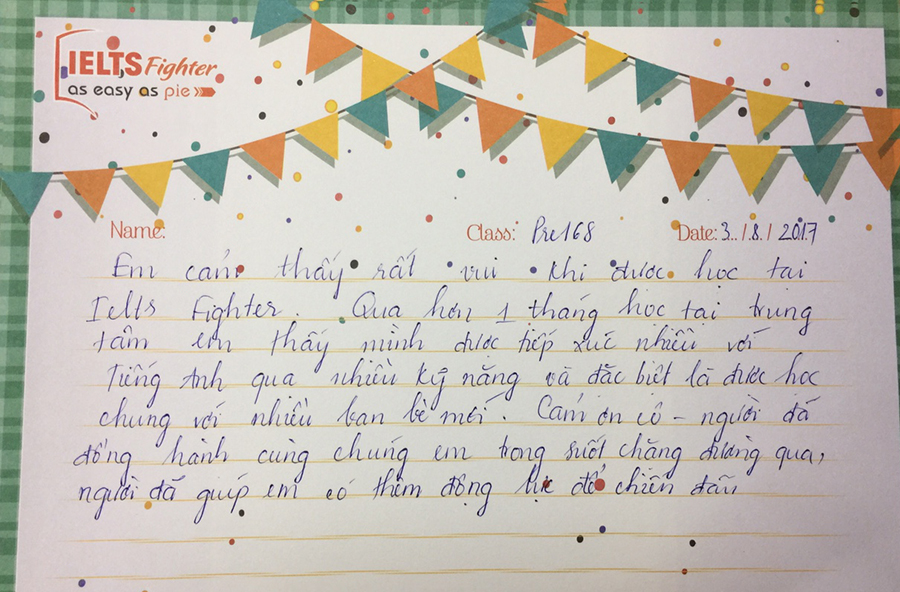 IELTS Fighter
as easy as pie
Name: Class: Pre168 Date: 3../.8./ 2017
Em cảm thấy rất vui khi được học tại
Ielts Fighter. Qua hơn 1 tháng học tại trung
tâm em thấy mình được tiếp xúc nhiều với
Tiếng Anh qua nhiều kỹ năng và đặc biệt là được học
chung với nhiều bạn bè mới. Cảm ơn cô - người đã
đồng hành cùng chúng em trong suốt chặng đường qua,
người đã giúp em có thêm động lực để chiến đấu